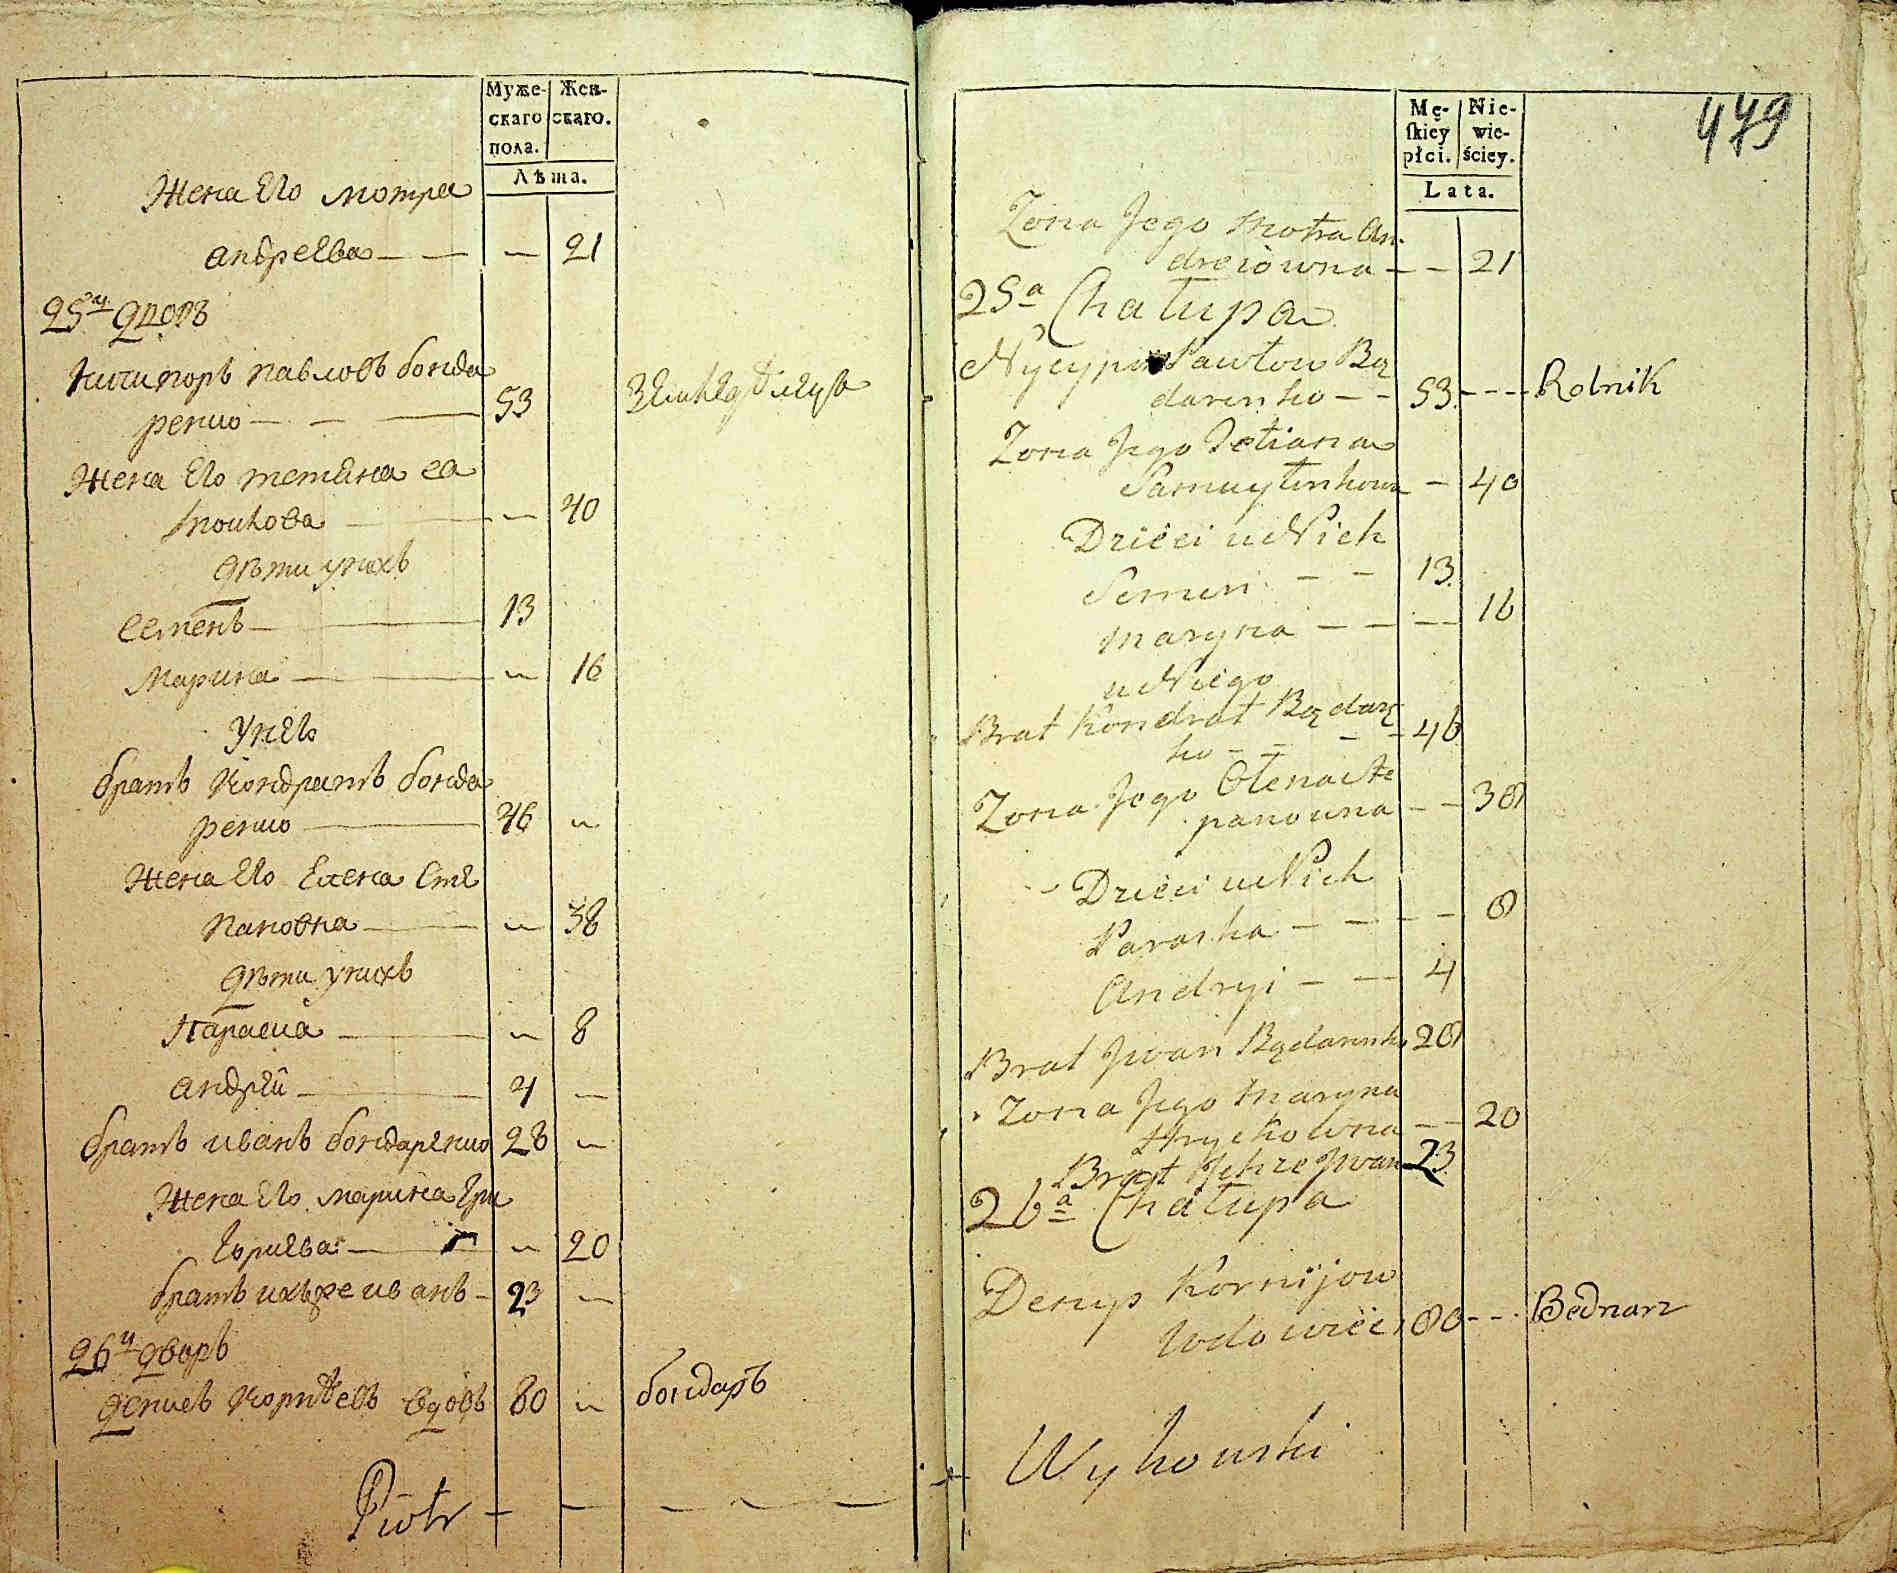 Муже-
скаго
пола.
Жен-
скаго.
Лѣта.
Жена Его мотра
андреева — — — 21
25й дворъ
Ничипоръ павловъ бонда
ренко — — — 53 Земледѣлецъ
Жена Его тетяна са
мойлова — — 40
дѣти унихъ
семенъ — 13
Марина — — 16
унего
братъ Кондратъ бонда
ренко — 46 —
Жена Его Елена сте
пановна — — 38
дѣти унихъ
Параска — — 8
андрей — 4 —
братъ иванъ бондаренко 28 —
Жена Его марина гри
горіева — — 20
братъ ихъже иванъ — 23 —
26й дворъ
денисъ Корнѣевъ вдовъ 80 — бондаръ
Piotr — — — — —
479
Mę-
skiey
płci.
Nie-
wie-
ściey.
Lata.
Zona Jego Motra An
dreiowna — — 21
25a Chałupa
Nyczypor Pawłow Bą
darenko — — 53 — — — Rolnik
Zona Jego Tetiana
Samuyłenkowa — 40
Dzieci u Nich
Semen — — 13
Maryna — — — 16
u Niego
Brat Kondrat Bądarę
ko — — — — 46
Zona Jego Ołena Ste
panowna — — 38
Dzieci u Nich
Paraska — — — — 8
Andryi — — 4
Brat Jwan Bądarenko 28
Zona Jego Maryna
Hryckowna — — 20
Brat Jchże Jwan 23
26a Chałupa
Denys Kornijow
wdowiec 80 — — — Bednarz
Wykowski